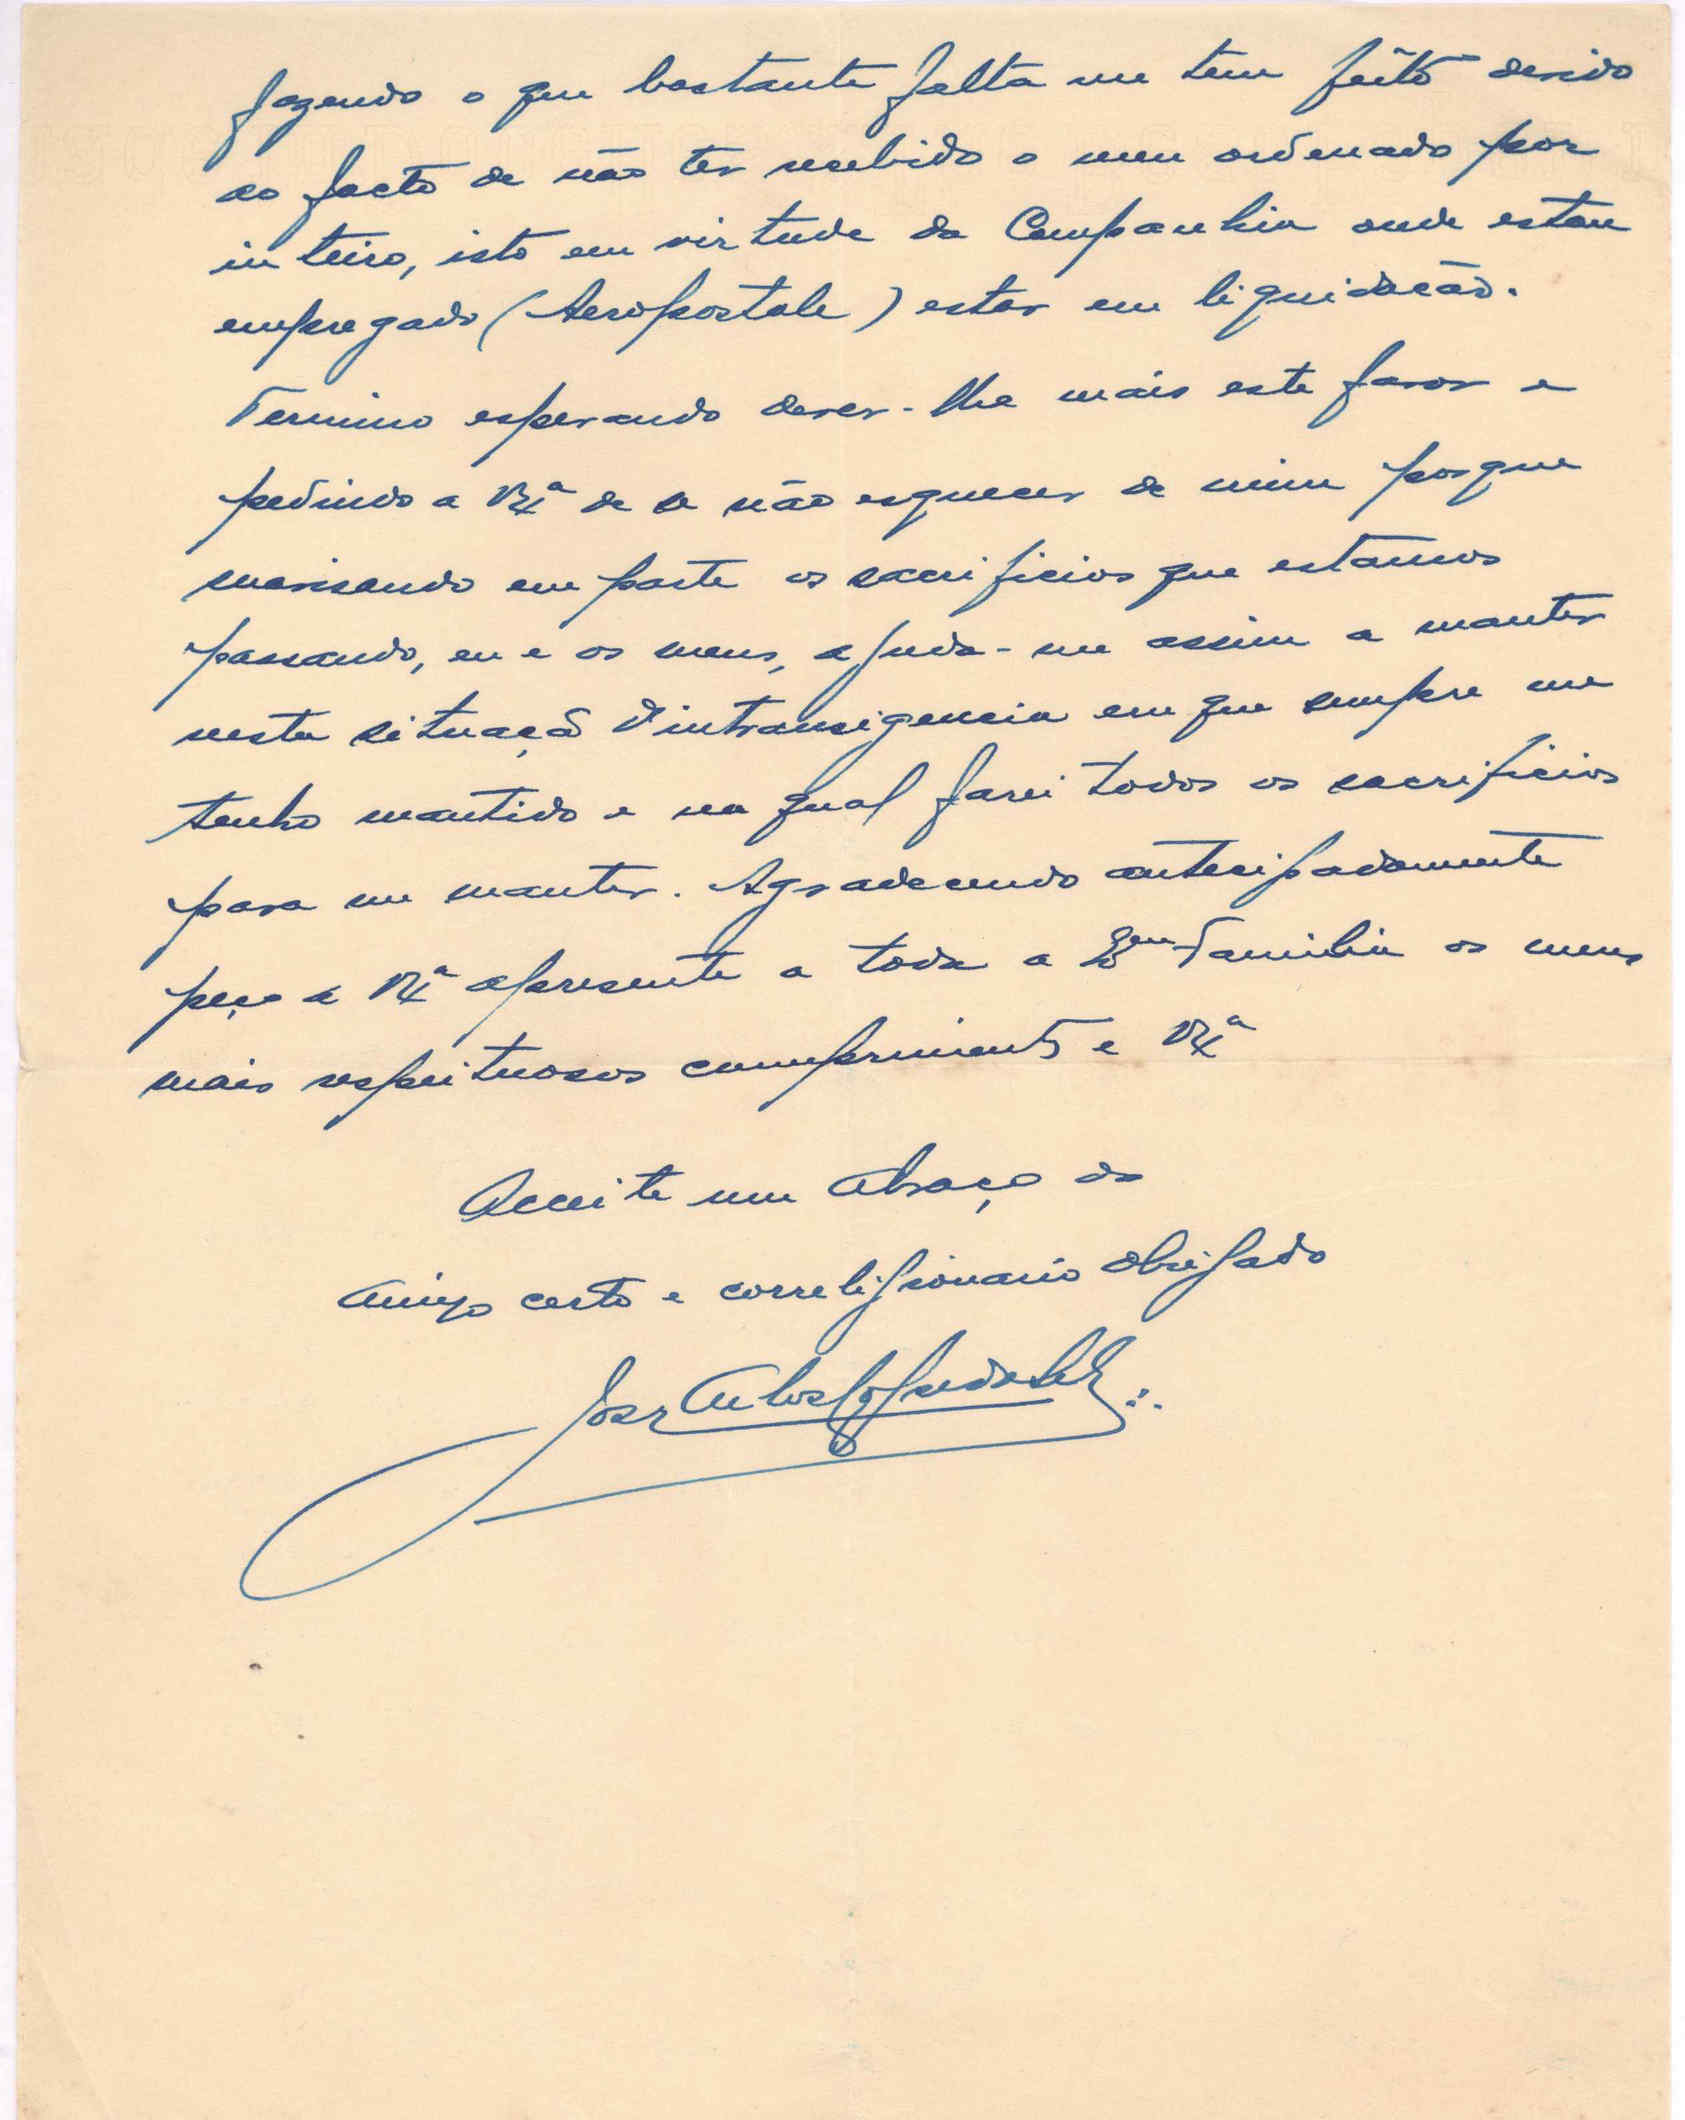 fazendo o que bastante falta me tem feito devido
ao facto de não ter recebido o meu ordenado por
inteiro, isto em virtude da Companhia onde estou
empregado (Aeropostale) estar em liquidação.
Termino esperando dever-lhe mais este favor e
pedindo a V. Exª de se não esquecer de mim porque
suavisando em parte os sacrificios que estamos
passando, eu e os meus, ajuda-me assim a manter
nesta situaçã d'intransigencia em que sempre me
tenho mantido e na qual farei todos os sacrificios
para me manter. Agradecendo antecipadamente
peço a V. Exª apresente a toda a Familia os meus
mais respeituosos cumprimentos e V. Exª
Acceite um abraço do
amigo certo e correligionario obrigado
José